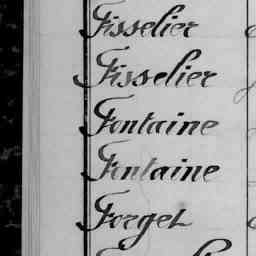 Fisselier
Fisselier
Fontaine
Fontaine
Forget